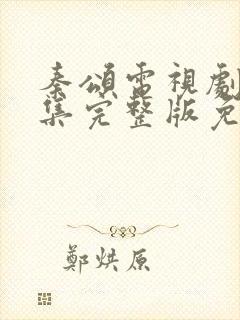 秦頌電視劇
集完整版免
鄭烘原